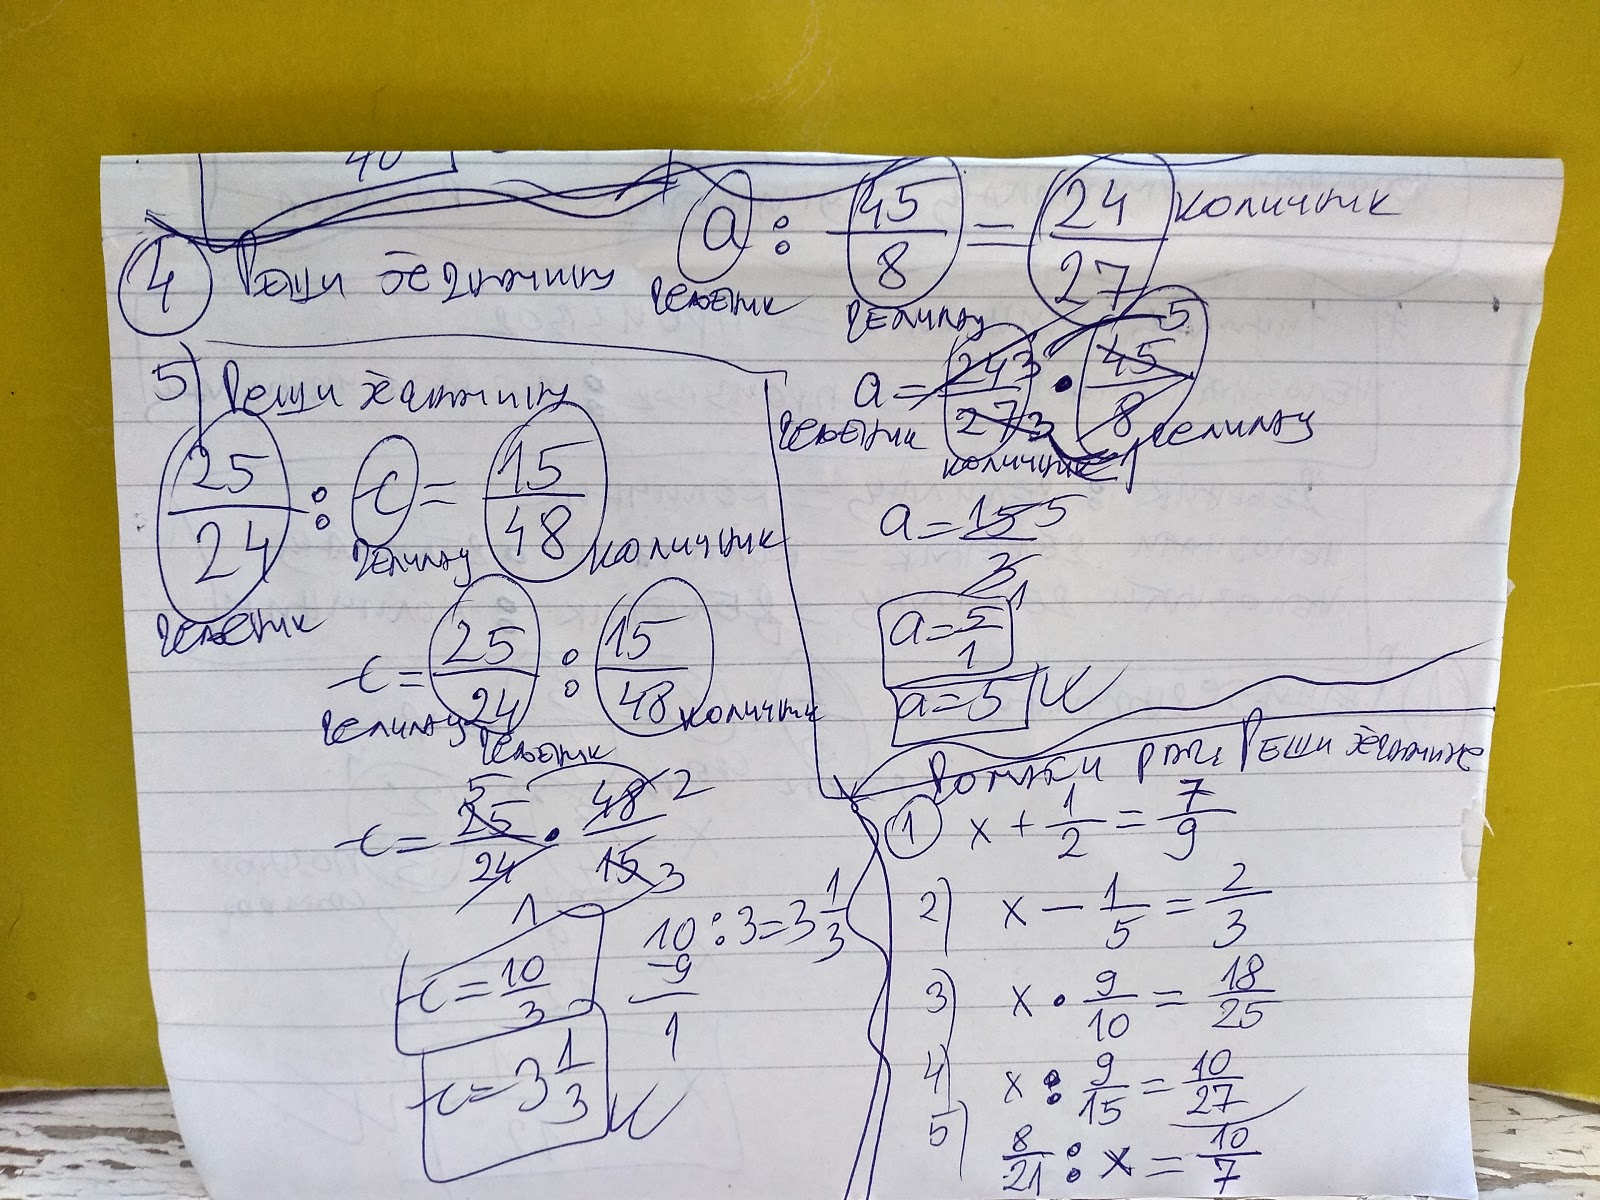 40
④ Реши једначину a : 45/8 = 24/27 количник
дељеник делилац
a = 24 3/27 3 · 45 5/8 1
дељеник количник делилац
a = 15 5/3 1
a = 5/1
a = 5
5) Реши једначину
25/24 : c = 15/48
дељеник делилац количник
c = 25/24 : 15/48
делилац дељеник количник
c = 25 5/24 1 · 48 2/15 3
c = 10/3
10 : 3 = 3 1/3
-9
1
c = 3 1/3
Домаћи рад, Реши једначине
① x + 1/2 = 7/9
2) x - 1/5 = 2/3
3) x · 9/10 = 18/25
4) x : 9/15 = 10/27
5) 8/21 : x = 10/7